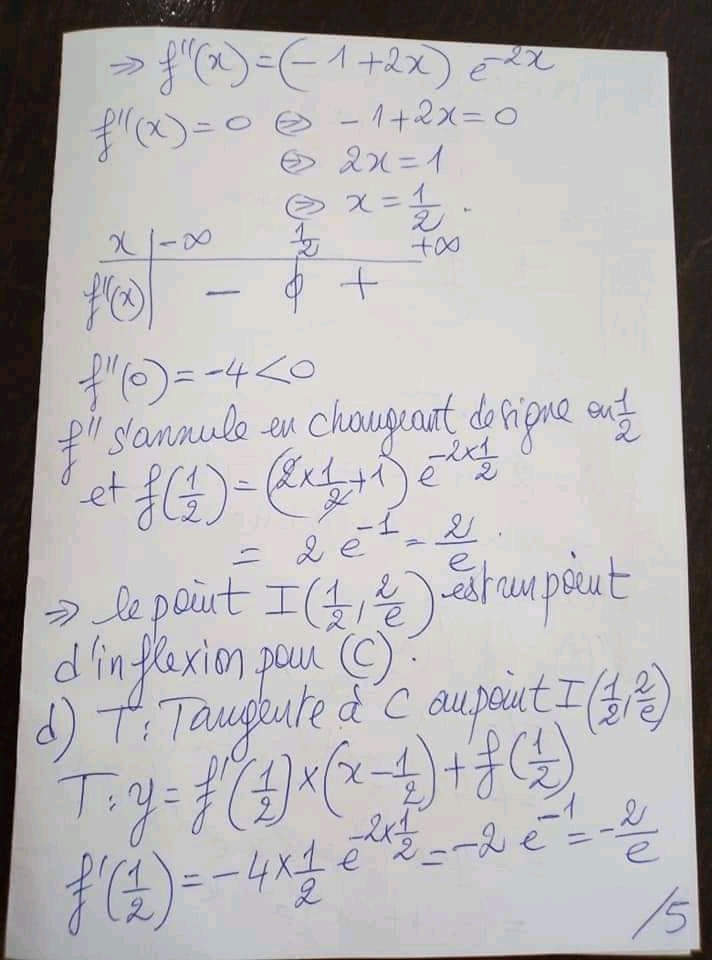 ⇒ f''(x) = (-1+2x) e^{-2x}
f''(x) = 0 ⇔ -1+2x=0
⇔ 2x=1
⇔ x = 1/2.
x | -∞ 1/2 +∞
f''(x) | - 0 +
f''(0) = -4 < 0
f'' s'annule en changeant de signe en 1/2
et f(1/2) = (2×1/2+1) e^{-2×1/2}
= 2 e^{-1} = 2/e.
⇒ le point I(1/2, 2/e) est un point
d'inflexion pour (C).
d) T: Tangente à C au point I(1/2, 2/e)
T: y = f'(1/2)×(x-1/2)+f(1/2)
f'(1/2) = -4×1/2 e^{-2×1/2} = -2 e^{-1} = -2/e
/5